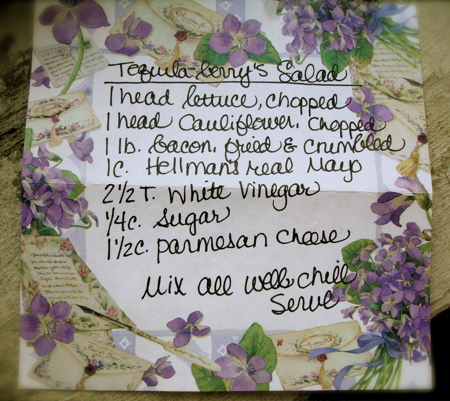 Tequila-berry's Salad
1 head lettuce, chopped
1 head Cauliflower, chopped
1 lb. bacon, fried & crumbled
1c. Hellman's real Mayo
2 1/2 T. White Vinegar
1/4c. Sugar
1 1/2c. parmesan cheese
Mix all well. chill
Serve